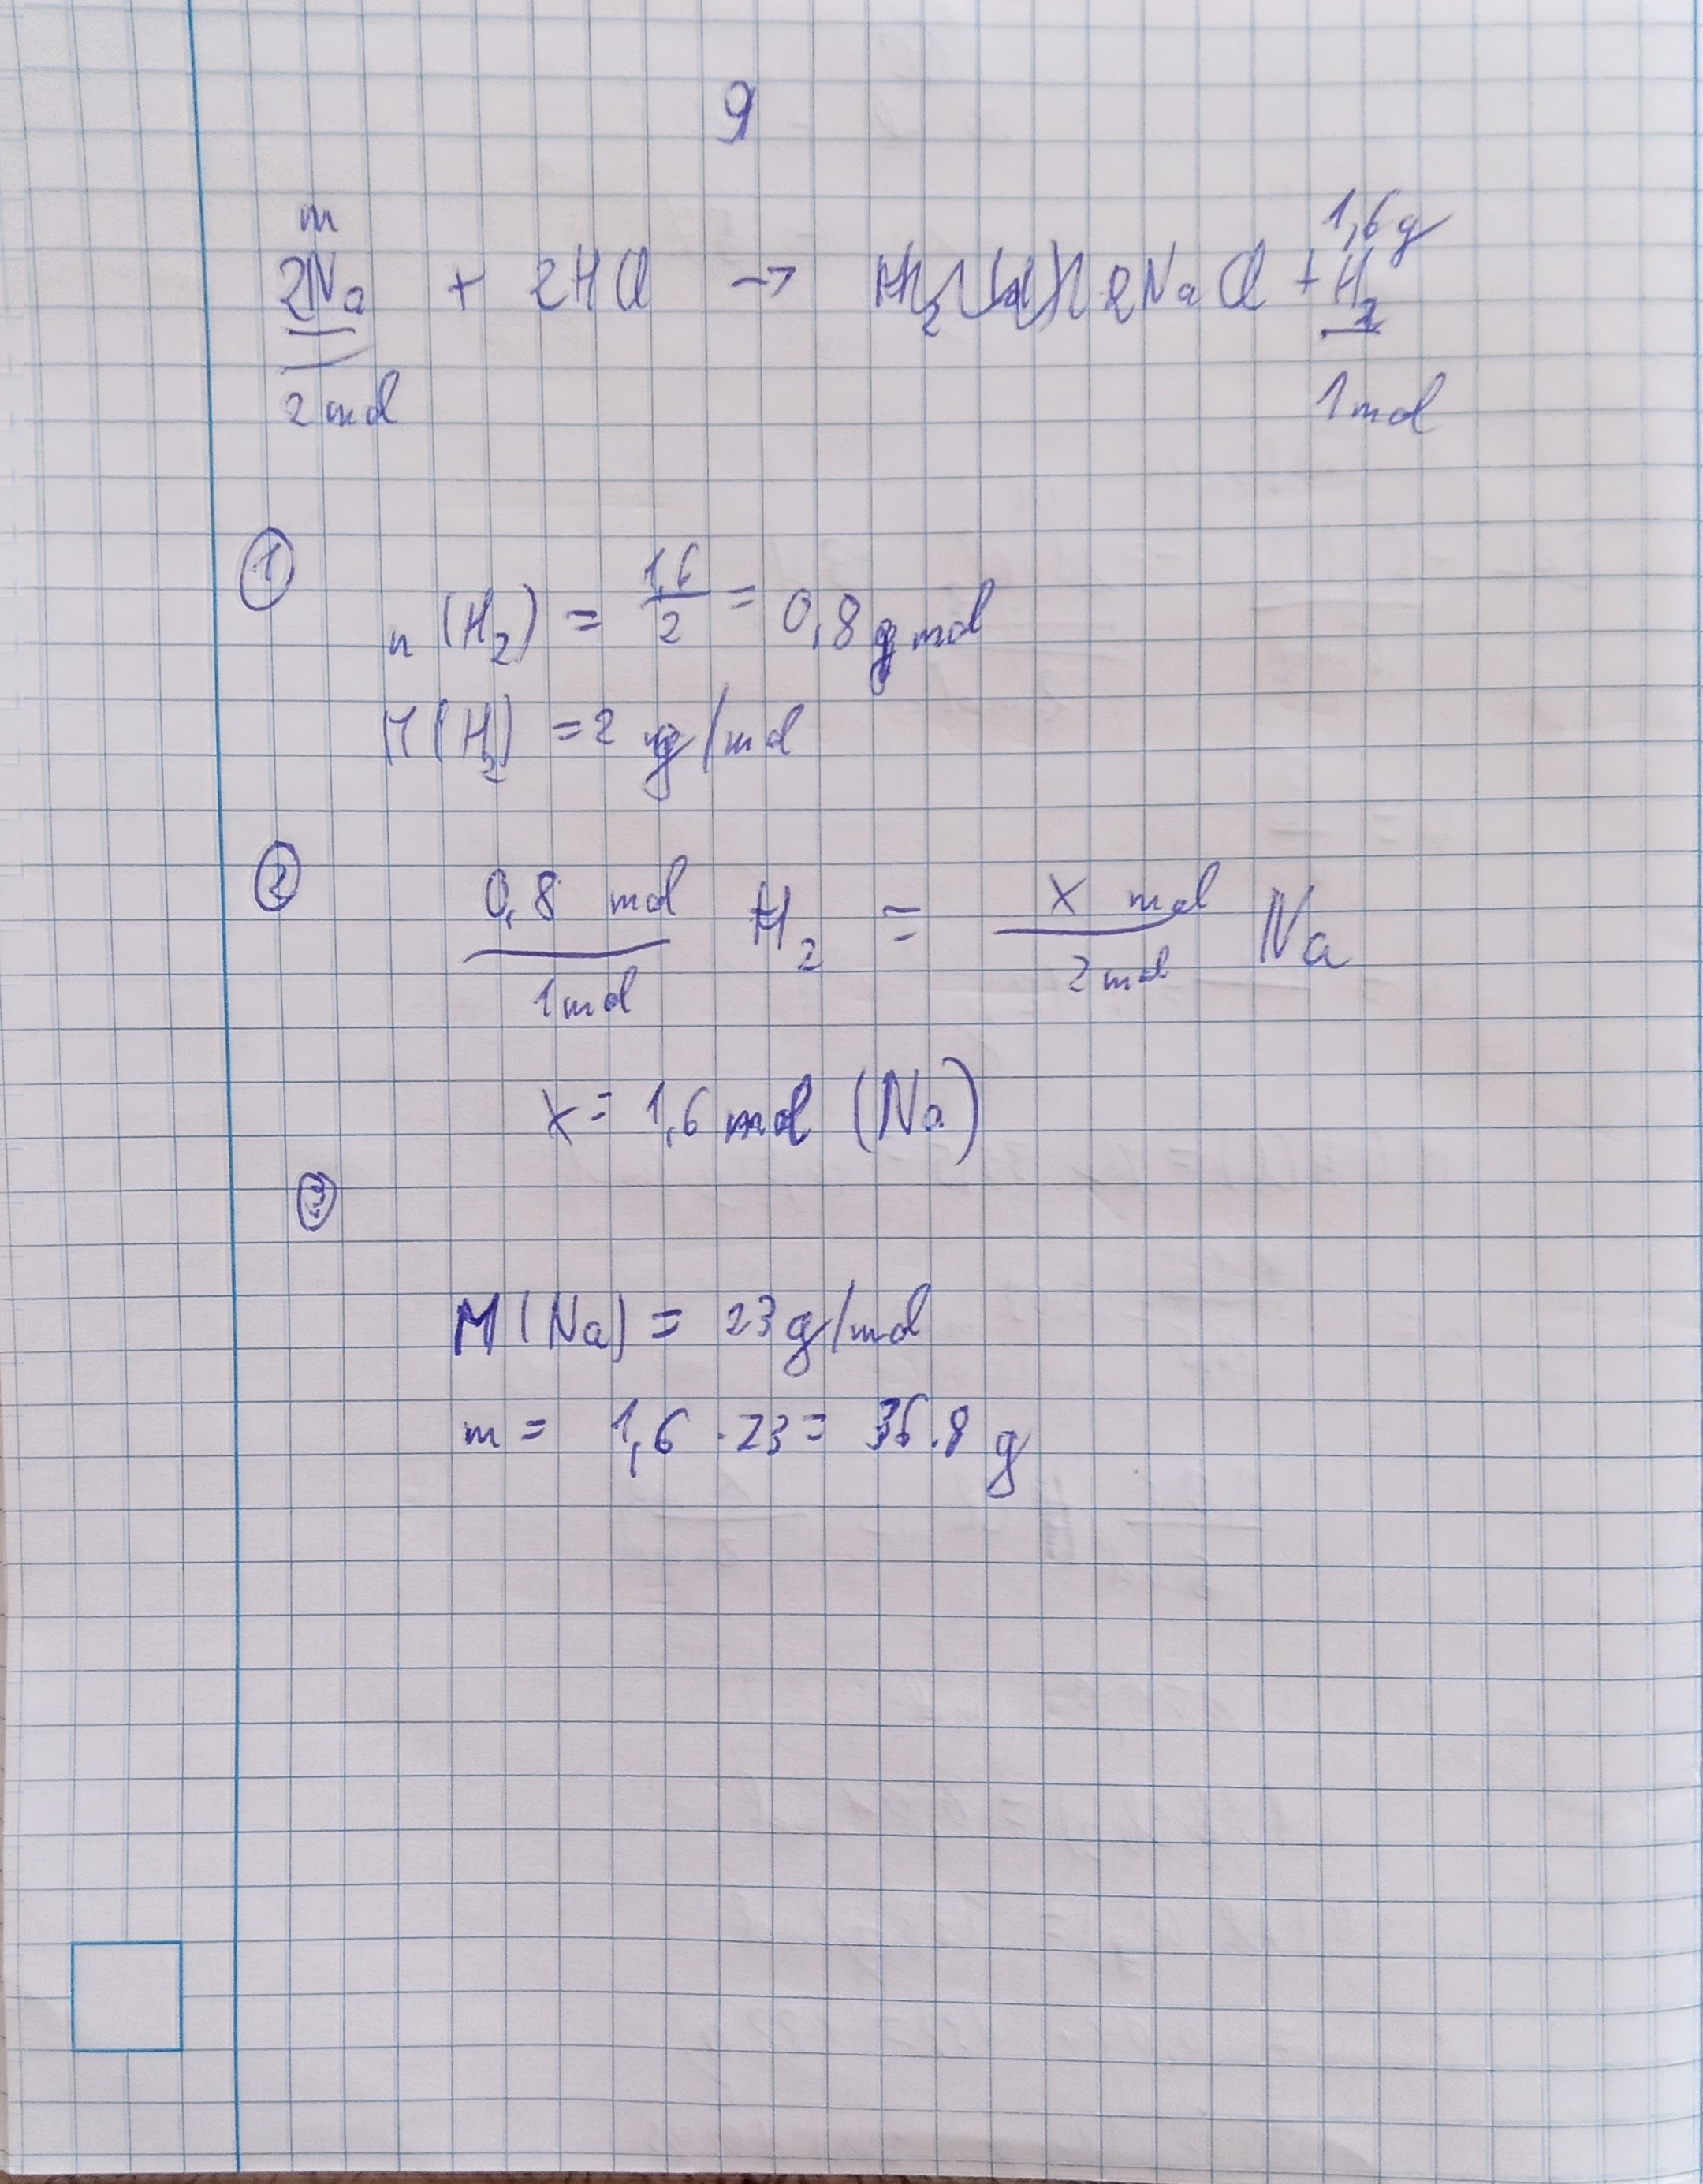 9
m 1,6 g
2Na + 2HCl → 2NaCl + H2
2 mol 1 mol
1
n (H2) = 1,6/2 = 0,8 mol
M (H2) = 2 g/mol
2
0,8 mol/1 mol H2 = x mol/2 mol Na
x = 1,6 mol (Na)
3
M (Na) = 23 g/mol
m = 1,6 · 23 = 36.8 g